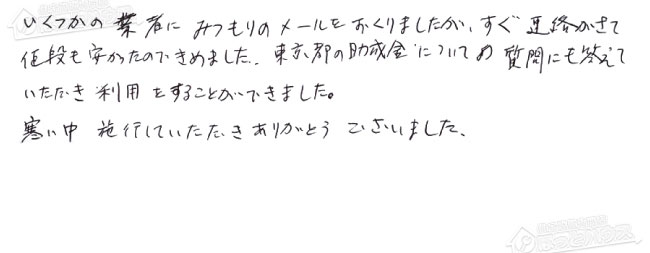 いくつかの業者にみつもりのメールをおくりましたが、すぐ連絡がきて
値段も安かったのできめました。東京都の助成金についての質問にも答えて
いただき利用をすることができました。
寒い中 施行していただきありがとうございました。